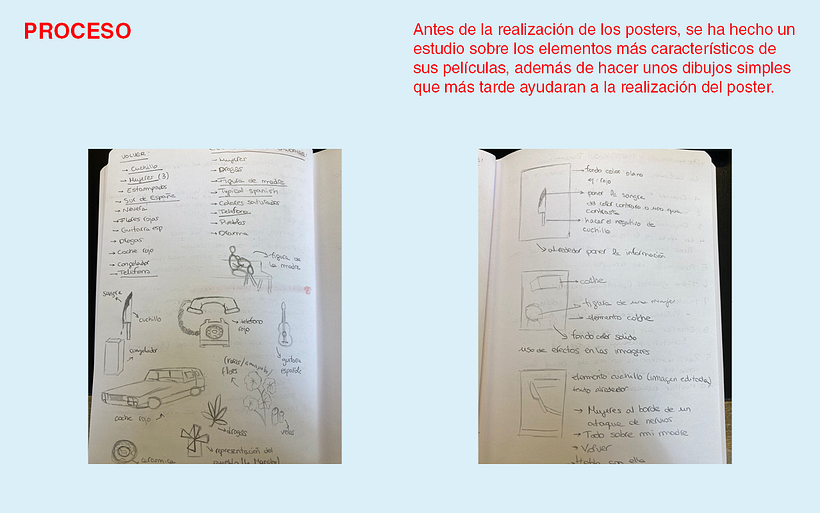 PROCESO
Antes de la realización de los posters, se ha hecho un
estudio sobre los elementos más característicos de
sus películas, además de hacer unos dibujos simples
que más tarde ayudaran a la realización del poster.
VOLVER:
→ Cuchillo
→ Mujeres (3)
→ Estampados
→ Sur de España
→ Nevera
→ Flores rojas
→ Guitarra esp
→ Drogas
→ Coche rojo
→ Congelador
→ Telefono
→ Mujeres
→ Drogas
→ Figura de madre
→ Typical spanish
→ Colores saturados
→ Telefono
→ Pueblos
→ Drama
→ figura de
la madre
sangre
cuchillo
telefono
rojo
congelador
guitarra
española
flores
coche rojo
drogas
velas
representación del
ceramica
fondo color plano
ej: rojo
poner la sangre
del color contrario o uno que
contraste
hacer el negativo de
cuchillo
alrededor poner la información
coche
figura de una mujer
elemento coche
fondo color solido
uso de efectos en las imagenes
elemento cuchillo (imagen editada)
texto alrededor
→ Mujeres al borde de un
ataque de nervios
→ Todo sobre mi madre
→ Volver
→ Hable con ella